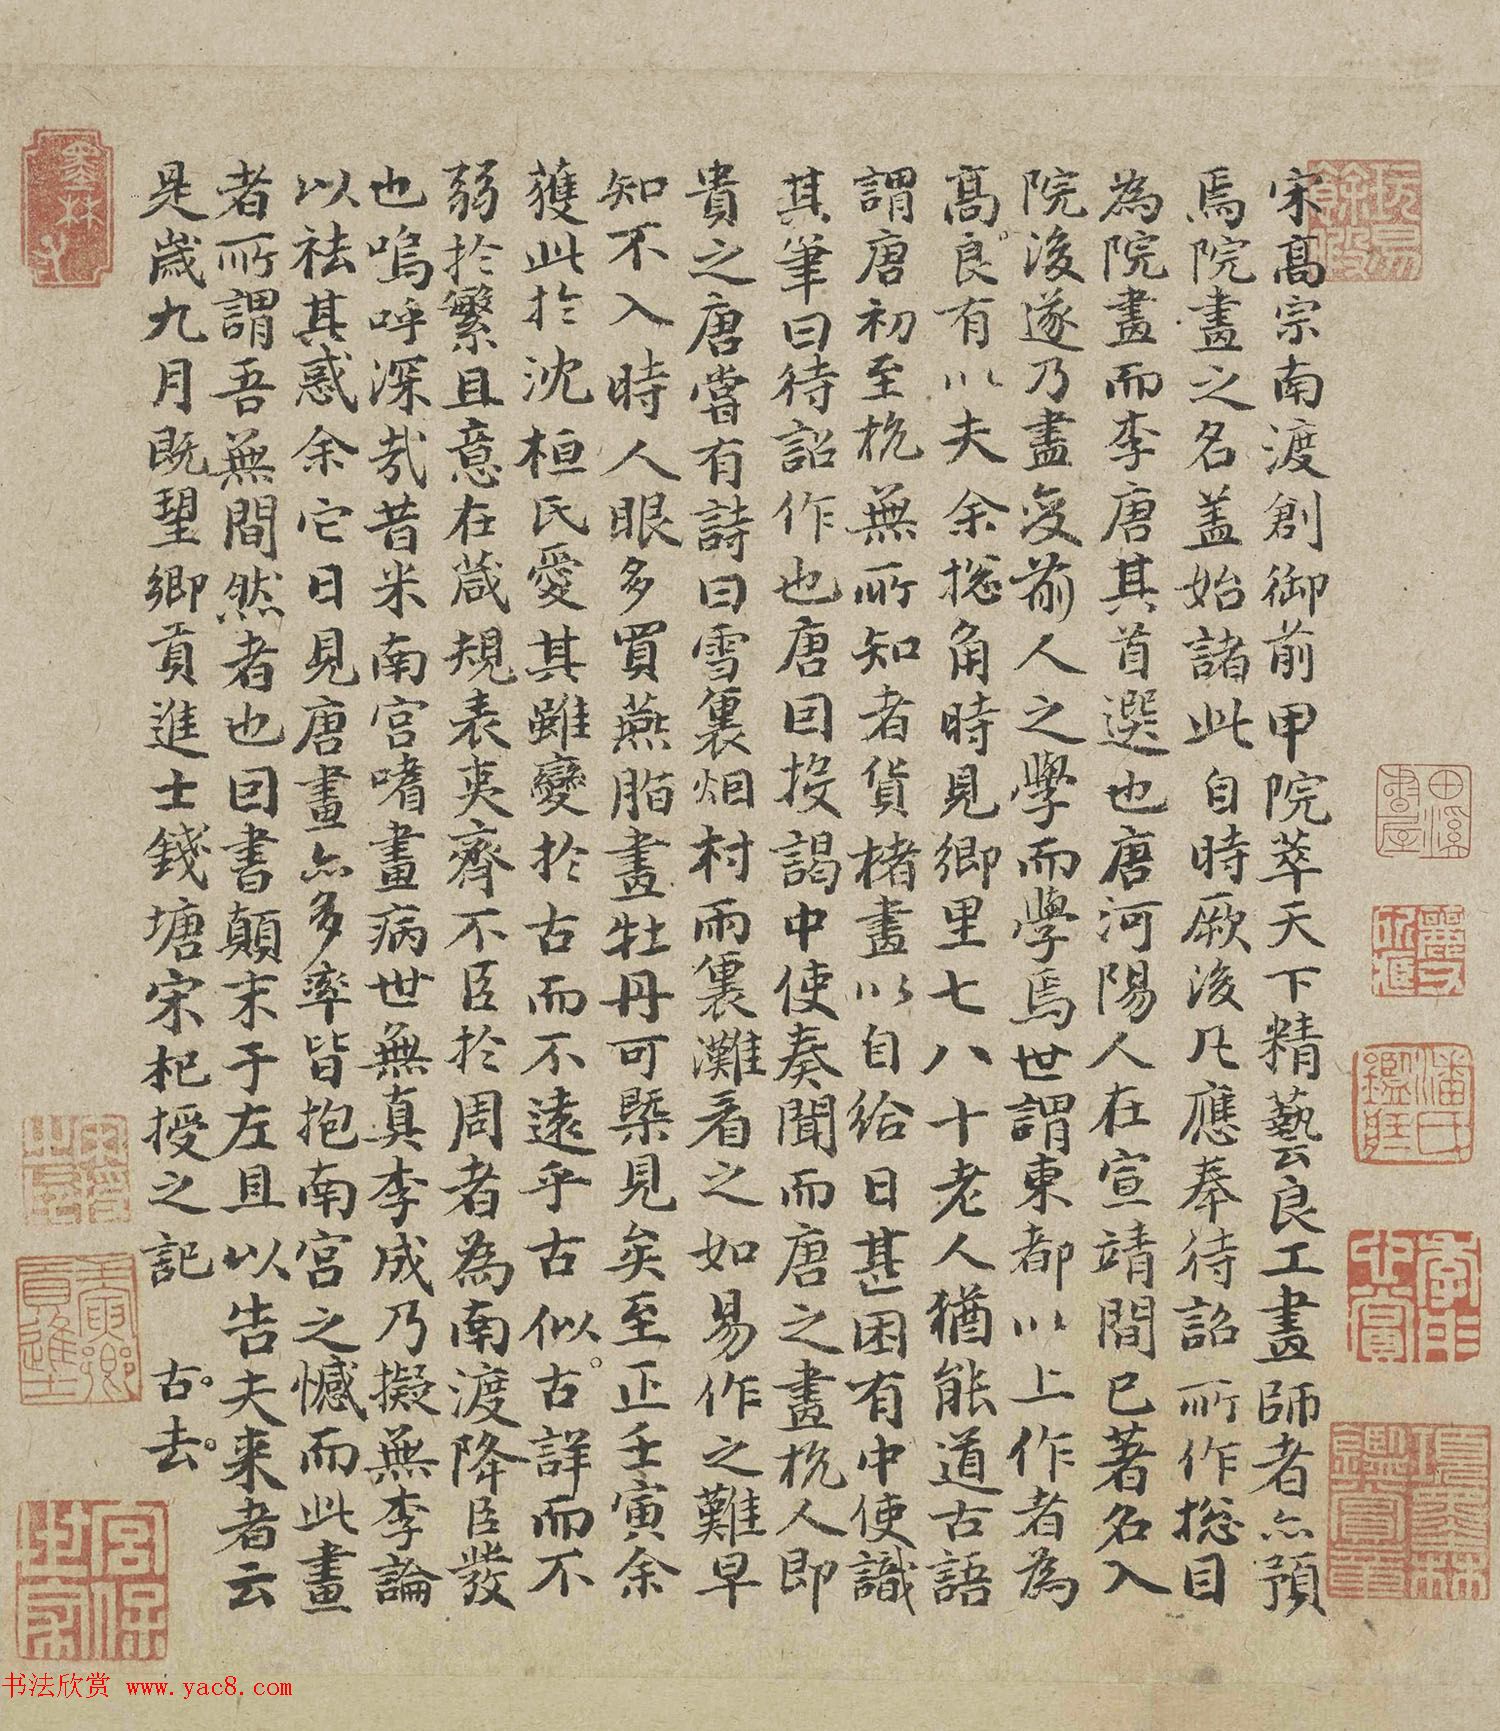 宋髙宗南渡創御前甲院萃天下精藝良工畫師者亦預
焉院畫之名盖始諸此自時厥後凡應奉待詔所作揔目
為院畫而李唐其首選也唐河陽人在宣靖間已著名入
院後遂乃盡変前人之學而學焉世謂東都以上作者為
髙良有以夫余揔角時見鄉里七八十老人猶能道古語
謂唐初至杭無所知者貨楮畫以自給日甚困有中使識
其筆曰待詔作也唐因投謁中使奏聞而唐之畫杭人即
貴之唐嘗有詩曰雪裏烟村雨裏灘看之如易作之難早
知不入時人眼多買燕脂畫牡丹可槩見矣至正壬寅余
獲此於沈桓氏愛其雖變於古而不遠乎古似古詳而不
弱於繁且意在箴規表夷齊不臣於周者為南渡降臣發
也嗚呼深㢤昔米南宮嗜畫病世無真李成乃擬無李論
以祛其惑余它日見唐畫亦多率皆抱南宮之憾而此畫
者所謂吾無間然者也因書顛末于左且以告夫来者云
是歲九月既望鄉貢進士錢塘宋杞授之記 古去
墨林
子孫世昌
田溪書屋
潘氏
項墨林鑑賞章
宮保世家
鄉貢進士
书法欣赏 www.yac8.com